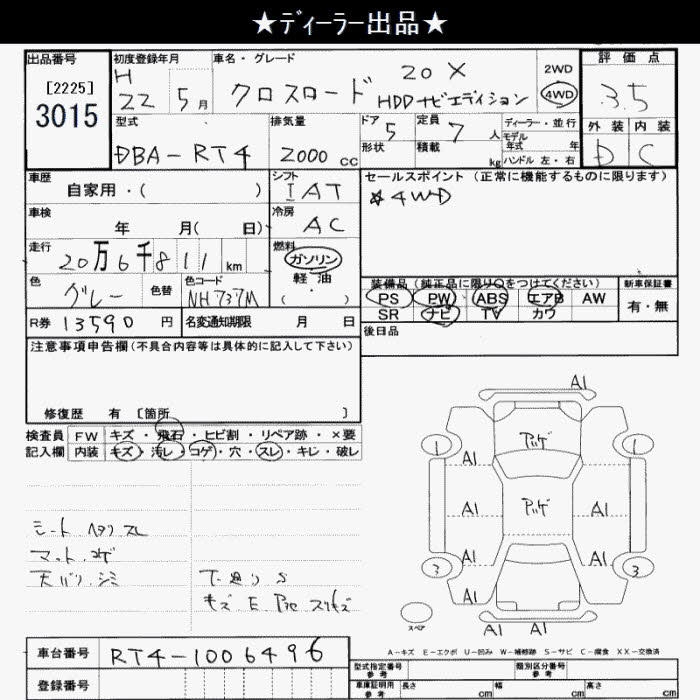 ★ディーラー出品★
出品番号
[2225]
3015
初度登録年月
H
22 5月
車名・グレード
クロスロード
20X
HDDナビエディション
2WD
4WD
評価点
3.5
外装 内装
D C
型式
DBA-RT4
排気量
2000 cc
ドア 5
形状
定員 7 人
積載 kg
ディーラー・並行
モデル
年式 年
ハンドル 左・右
車歴
自家用・( )
シフト
IAT
セールスポイント (正常に機能するものに限ります)
☆4WD
車検
年 月( 日)
冷房
AC
走行
20万6千811 km
燃料
ガソリン
軽油
( ・ )
色
グレー
色替
色コード
NH737M
装備品 (純正品に限り○をつけてください)
PS PW ABS エアB AW
SR ナビ TV カワ
新車保証書
有・無
R券 13590 円
名変通知期限 月 日
後日品
注意事項申告欄(不具合内容等は具体的に記入して下さい)
修復歴 有 [箇所 ]
検査員
記入欄
FW キズ・飛石・ヒビ割・リペア跡・×要
内装 キズ・汚レ・コゲ・穴・スレ・キレ・破レ
シート ヘタリ スレ
マット コゲ
天バリ シミ
下廻り S
A1
アゲ
1 1
A1
A1 アゲ A1
A1 A1
3 3
A1
スペア
A1 A1
A-キズ E-エクボ U-凹み W-補修跡 S-サビ C-腐食 XX-交換済
車台番号 RT4-1006496
登録番号
型式指定番号
参考
類別区分番号
参考
車庫証明用
参考
長さ cm 幅 cm 高さ cm